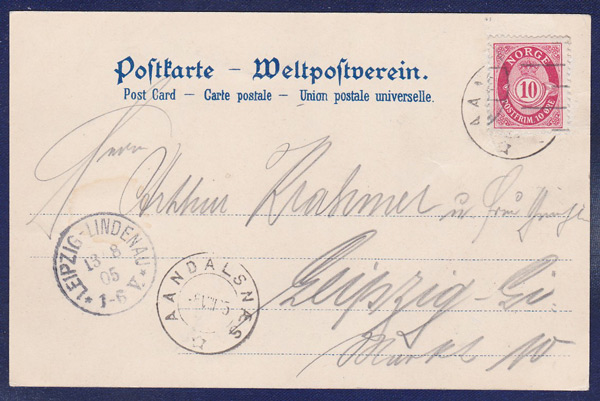 Postkarte – Weltpostverein.
Post Card – Carte postale – Union postale universelle.
NORGE
10
POSTFRIM. 10 ØRE
AA
Herrn
Arthur Krahmer u. Frau
Leipzig-
Markt 10
LEIPZIG-LINDENAU
13 8
05
*1-6 V.*
AANDALSNÆS